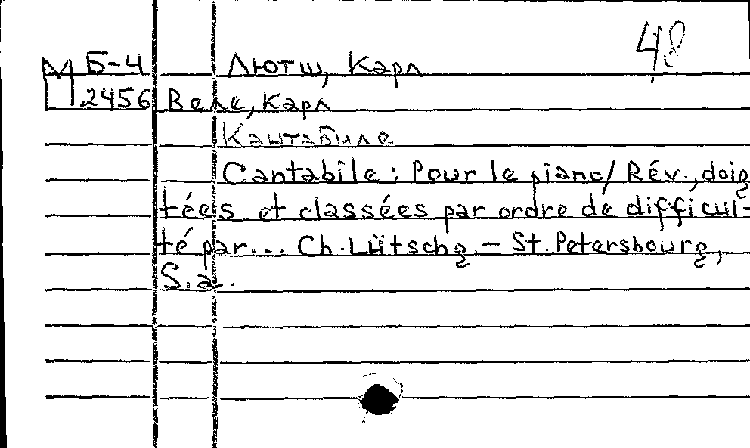 48
М Б-4 Лютш, Карл
2456 Веле, Карл
Кантабиле
Cantabile : Pour le piano / Rév., doig
tées et classées par ordre de difficul-
té par... Ch. Lütschg – St. Petersbourg,
S.a.